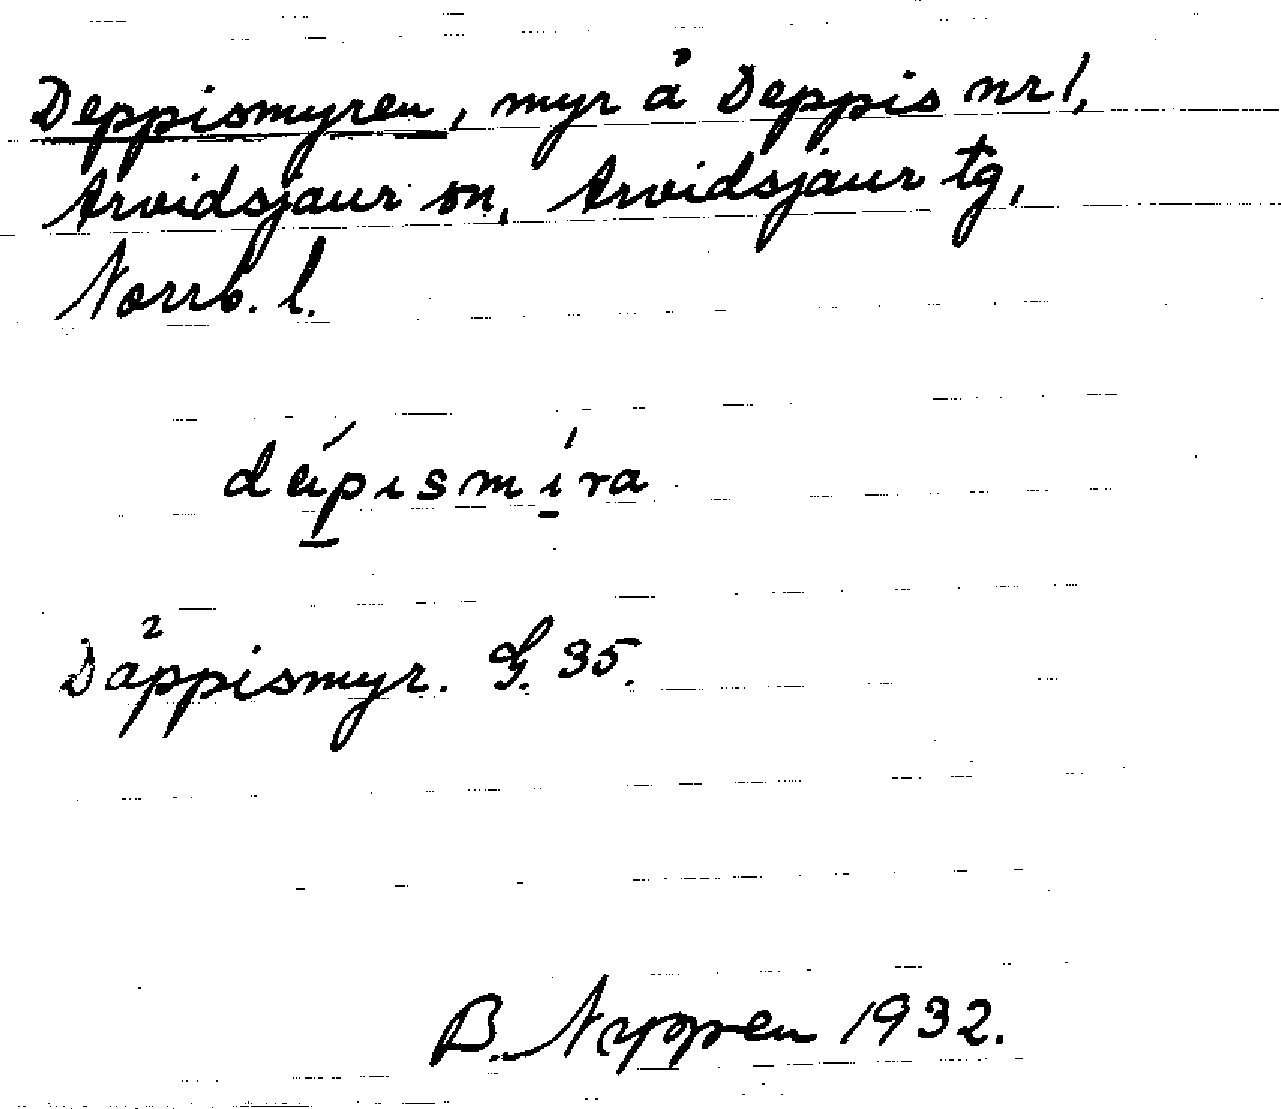 Deppismyren, myr å Deppis nr 1,
Arvidsjaur sn, Arvidsjaur tg,
Norrb. l.
däpismira
Däppismyr. G. 35.
B. Nyppen 1932.